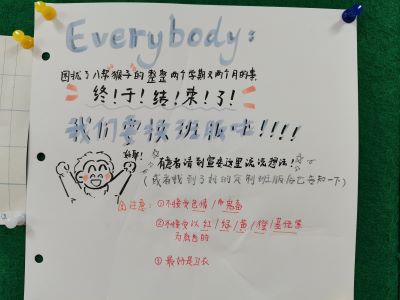 Everybody:
困扰了八帮猴子的整整两个学期又两个月的事
终!于!结!束!了!
我们要换班服啦!!!!
好耶!
有意者请到宣委这里说说想法!
(或者找到了利的定制班服店也告知一下)
注意: ①不接受色情/
②不接受以红/绿/黄/橙/
为底色的
③最好是卫衣